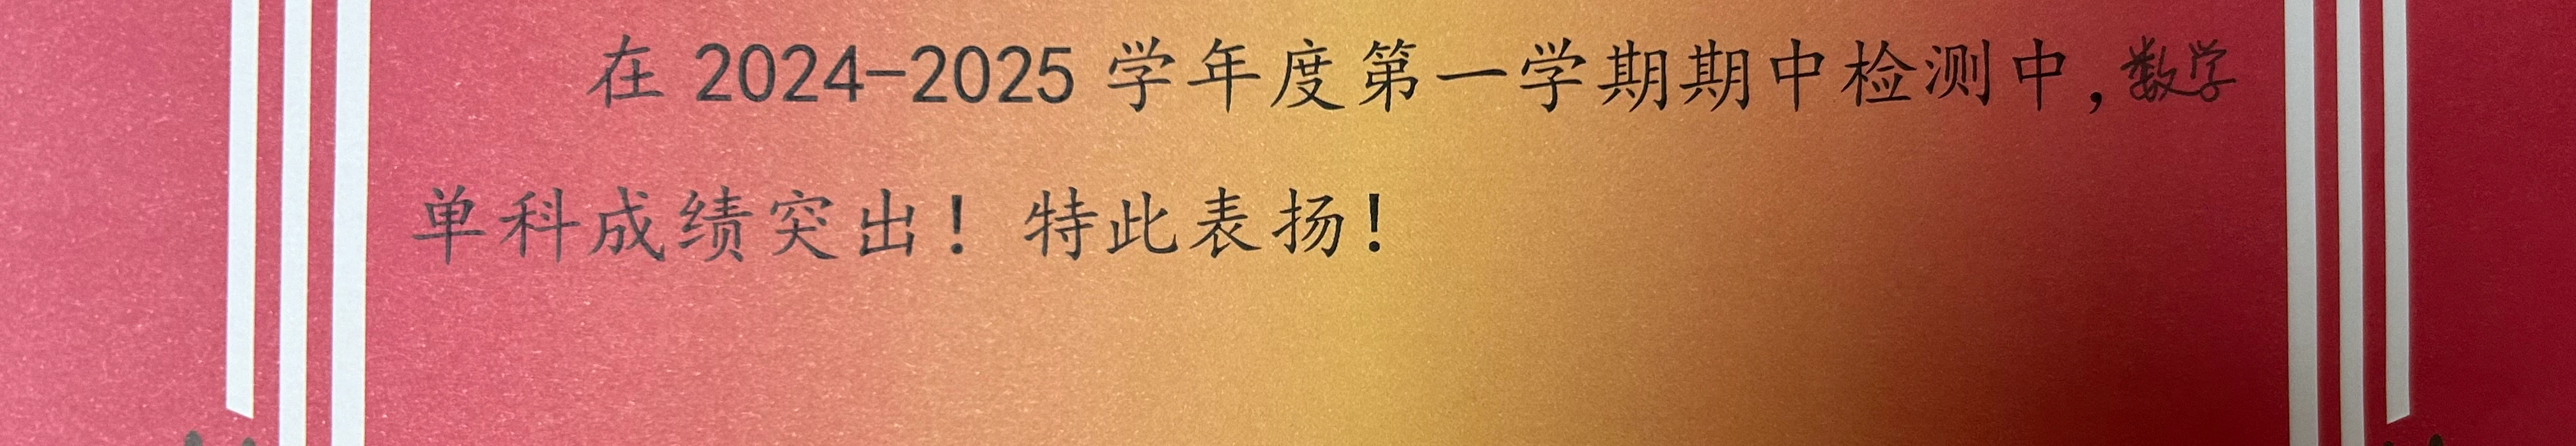 在 2024-2025 学年度第一学期期中检测中,数学
单科成绩突出！特此表扬！